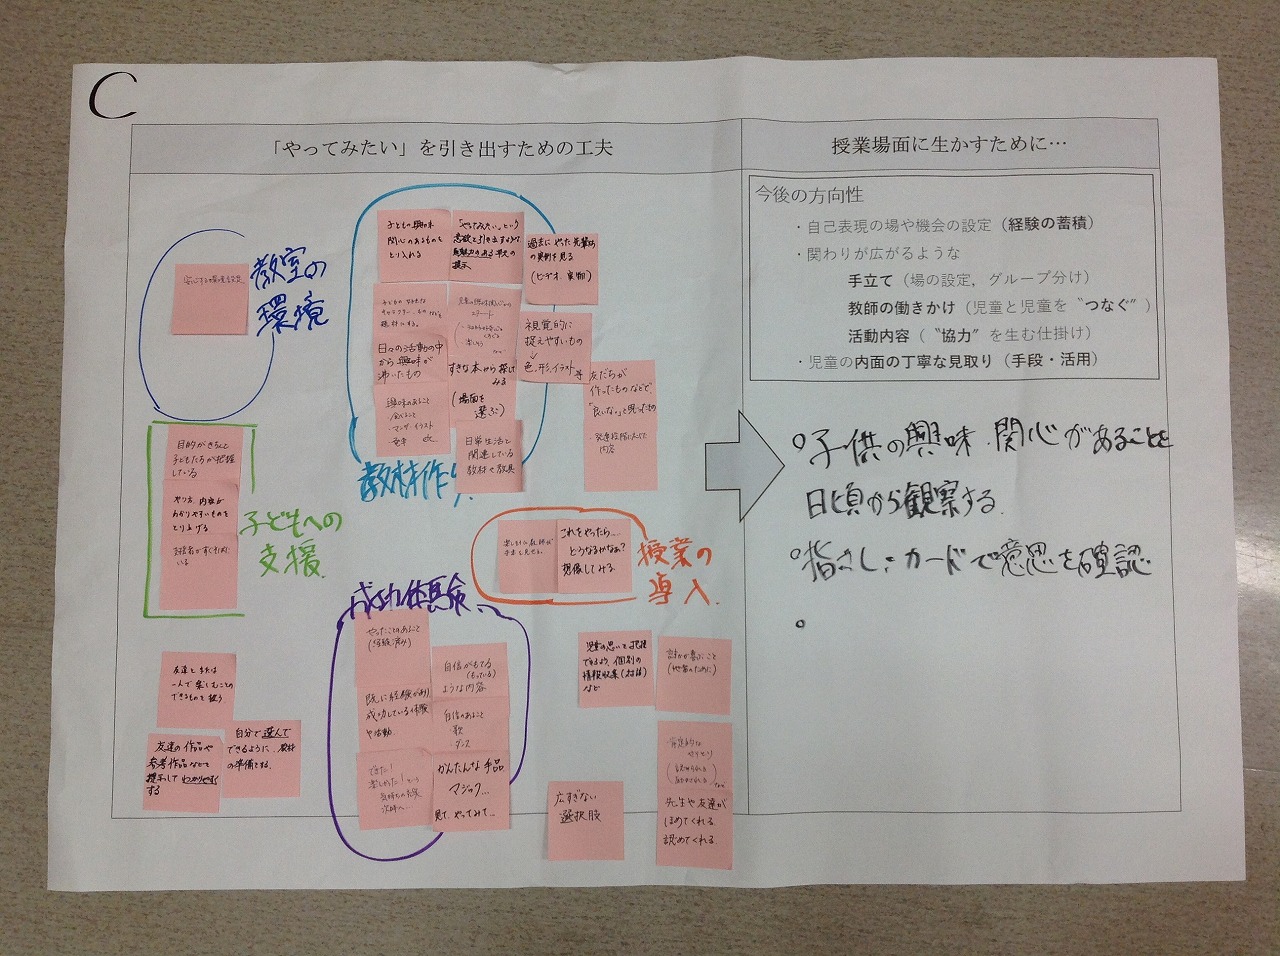 C
「やってみたい」を引き出すための工夫
授業場面に生かすために…
今後の方向性
・自己表現の場や機会の設定（経験の蓄積）
・関わりが広がるような
手立て（場の設定，グループ分け）
教師の働きかけ（児童と児童を〝つなぐ〟）
活動内容（〝協力〟を生む仕掛け）
・児童の内面の丁寧な見取り（手段・活用）
○子供の興味・関心があることを
日頃から観察する。
○指さし・カードで意思を確認
○
教室の
環境
教材作り
子どもの興味
関心のあるものを
とり入れる
「やってみたい」という
意欲を引き出すような
魅力のある
の提示
過去にやった
の実例を見る
(ビデオ、実物)
スタート
視覚的に
捉えやすいもの
↓
色、形、イラスト等
日々の活動の中
から興味が
沸いたもの
すきな本から探して
みる
(場面を
選ぶ)
興味のあること
・食べること
・マンガ イラスト
・音楽 etc
日常生活と
関連している
教材や教具
友だちが
作ったものなどで、
「良いな」と思ったもの
内容
子どもへの
支援
目的がきちんと
子どもたちが把握
している
やり方、内容が
わかりやすいものを
とり上げる
支援者がすぐ
いる
授業の
導入
これをやったら…
どうなるかなぁ?
想像してみる
成功体験
やったことのあること
(経験済み)
自信がもてる
(もっている)
ような内容
既に経験があり
成功している体験
や活動
自信のあること
歌
・ダンス
できた!
楽しかった!という
気持ちの
次時へ…
かんたんな手品
マジック…
見て、やってみて…
友達と
一人で楽しむことの
できるものを扱う
友達の作品や
参考作品などを
提示してわかりやすく
する
自分で選んで
できるように、教材
の準備をする
児童の思いを把握
できるよう、個別の
情報収集(対話)
など
誰かが喜ぶこと
(他者のために)
やりとり
広すぎない
選択肢
先生や友達が
ほめてくれる
認めてくれる